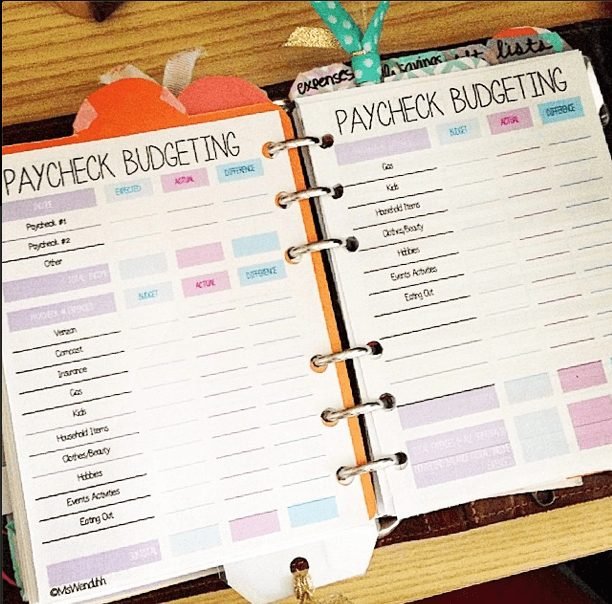 expenses
savings
lists
PAYCHECK BUDGETING
INCOME EXPECTED ACTUAL DIFFERENCE
Paycheck #1
Paycheck #2
Other
TOTAL INCOME
BUDGET ACTUAL DIFFERENCE
Verizon
Comcast
Insurance
Gas
Kids
Household Items
Clothes/Beauty
Hobbies
Events Activities
Eating Out
SUBTOTAL
©MsWenduhh
PAYCHECK BUDGETING
BUDGET ACTUAL DIFFERENCE
Gas
Kids
Household Items
Clothes/Beauty
Hobbies
Events Activities
Eating Out